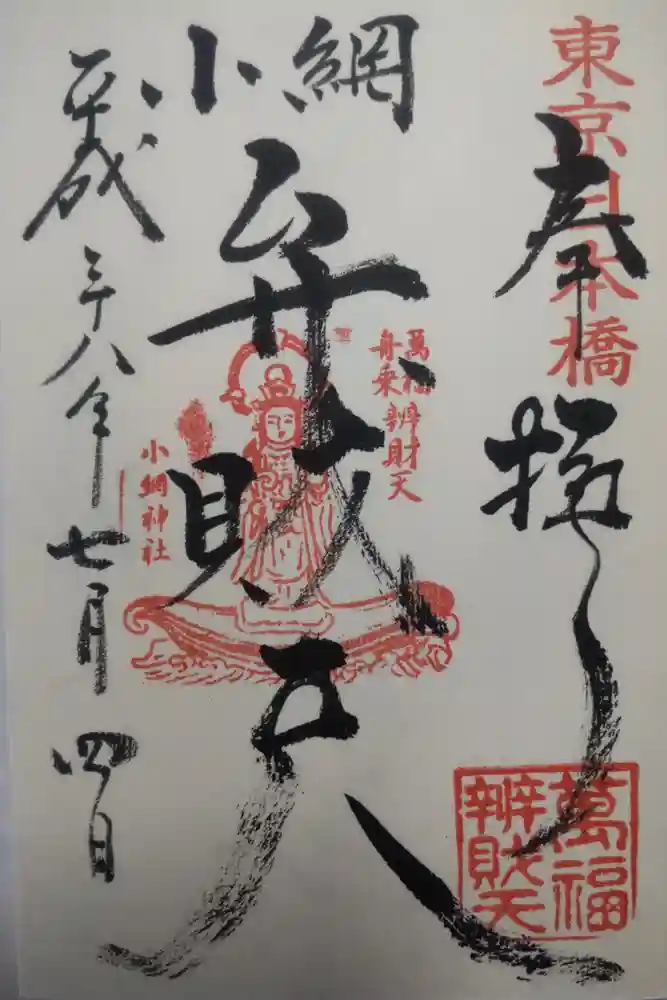 東京日本橋
奉拝
小網
弁財天
萬福
舟乗辨財天
小網神社
平成二十八年七月四日
萬福
辨財天